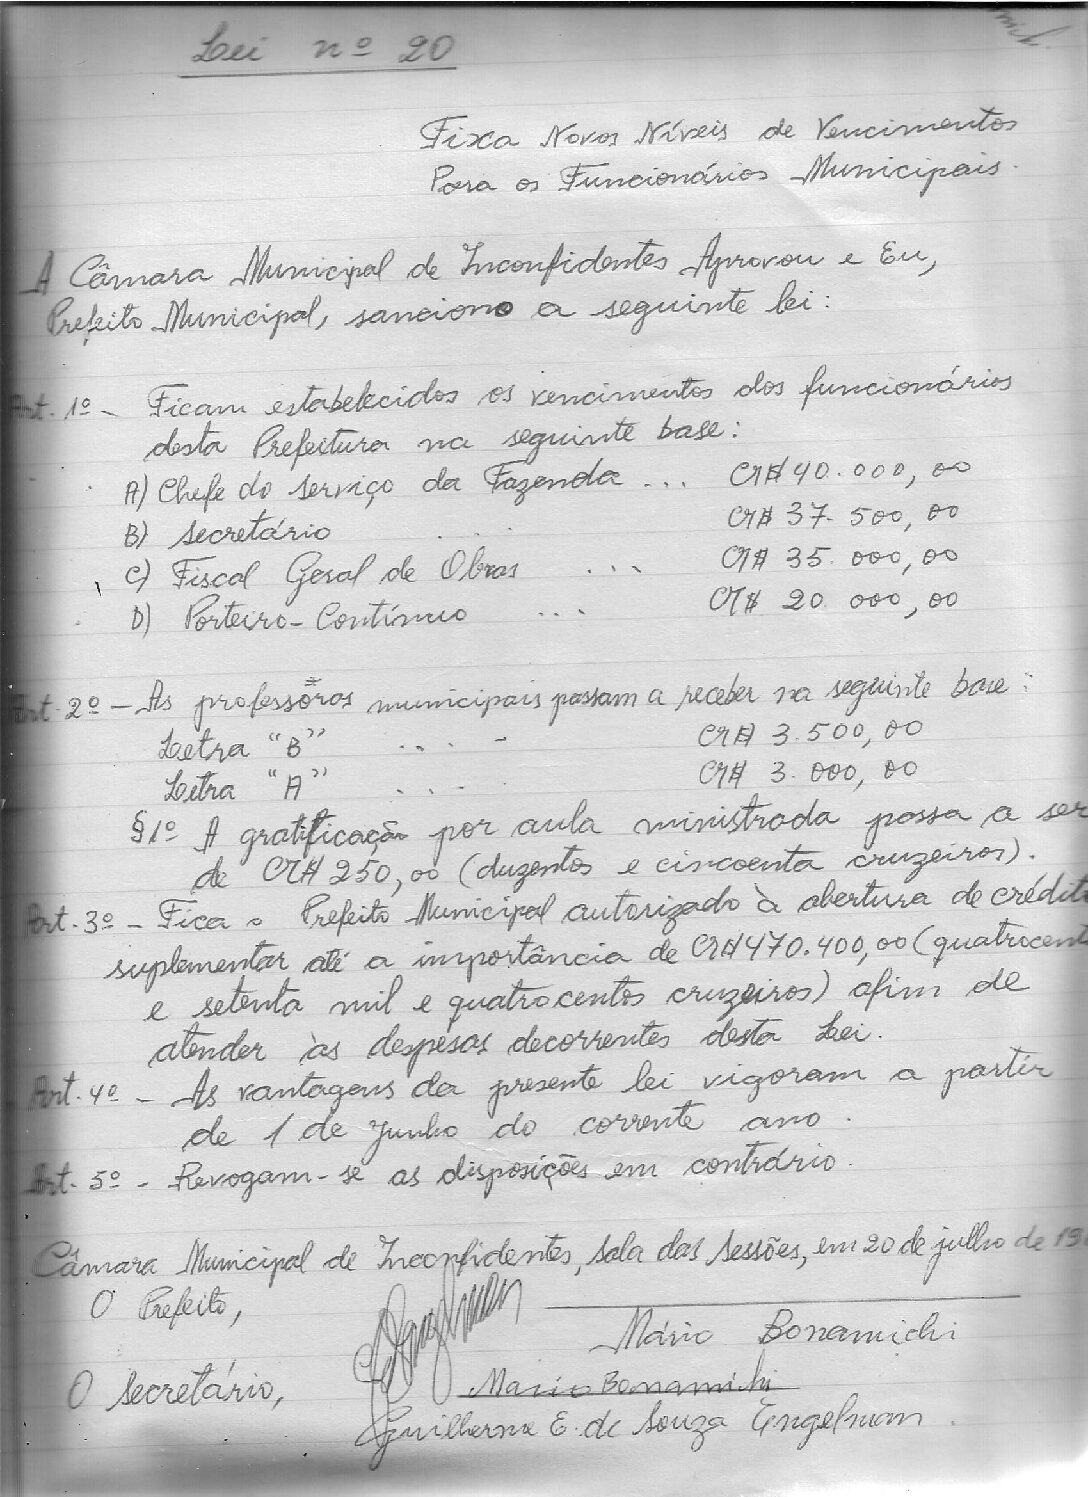 Lei nº 20
Fixa Novos Níveis de Vencimentos
Para os Funcionários Municipais.
A Câmara Municipal de Inconfidentes Aprovou e Eu,
Prefeito Municipal, sanciono a seguinte lei:
Art. 1º - Ficam estabelecidos os vencimentos dos funcionários
desta Prefeitura na seguinte base:
A) Chefe do serviço da Fazenda ... CR$ 40.000,00
B) Secretário . . CR$ 37.500,00
C) Fiscal Geral de Obras ... CR$ 35.000,00
D) Porteiro-Contínuo ... CR$ 20.000,00
Art. 2º - As professôras municipais passam a receber na seguinte base:
Letra "B" .... CR$ 3.500,00
Letra "A" .... CR$ 3.000,00
§1º A gratificação por aula ministrada passa a ser
de CR$ 250,00 (duzentos e cincoenta cruzeiros).
Art. 3º - Fica o Prefeito Municipal autorizado à abertura de crédito
suplementar até a importância de CR$ 470.400,00 (quatrocent
e setenta mil e quatrocentos cruzeiros) afim de
atender às despêsas decorrentes desta Lei.
Art. 4º - As vantagens da presente lei vigoram a partir
de 1 de Junho do corrente ano.
Art. 5º - Revogam-se as disposições em contrário.
Câmara Municipal de Inconfidentes, sala das Sessões, em 20 de julho de 19
O Prefeito,
Mário Bonamichi
O Secretário,
Mario Bonamichi
Guilherme E. de Souza Engelman.